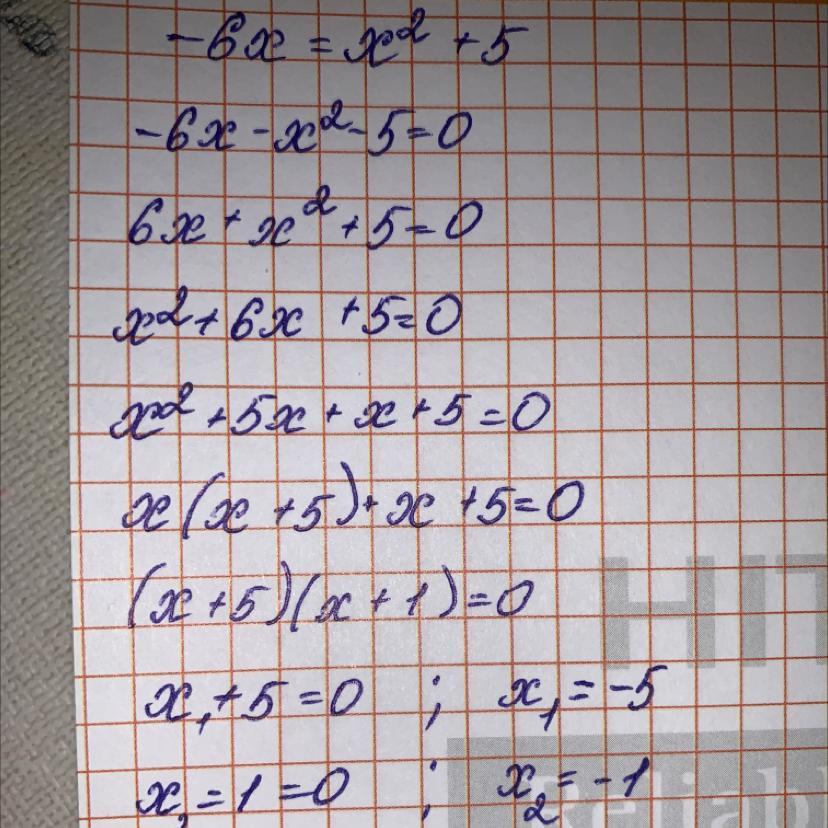 -6x = x² + 5
-6x - x² - 5 = 0
6x + x² + 5 = 0
x² + 6x + 5 = 0
x² + 5x + x + 5 = 0
x(x + 5) + x + 5 = 0
(x + 5)(x + 1) = 0
x₁ + 5 = 0 ; x₁ = -5
x₁ = 1 = 0 ; x₂ = -1